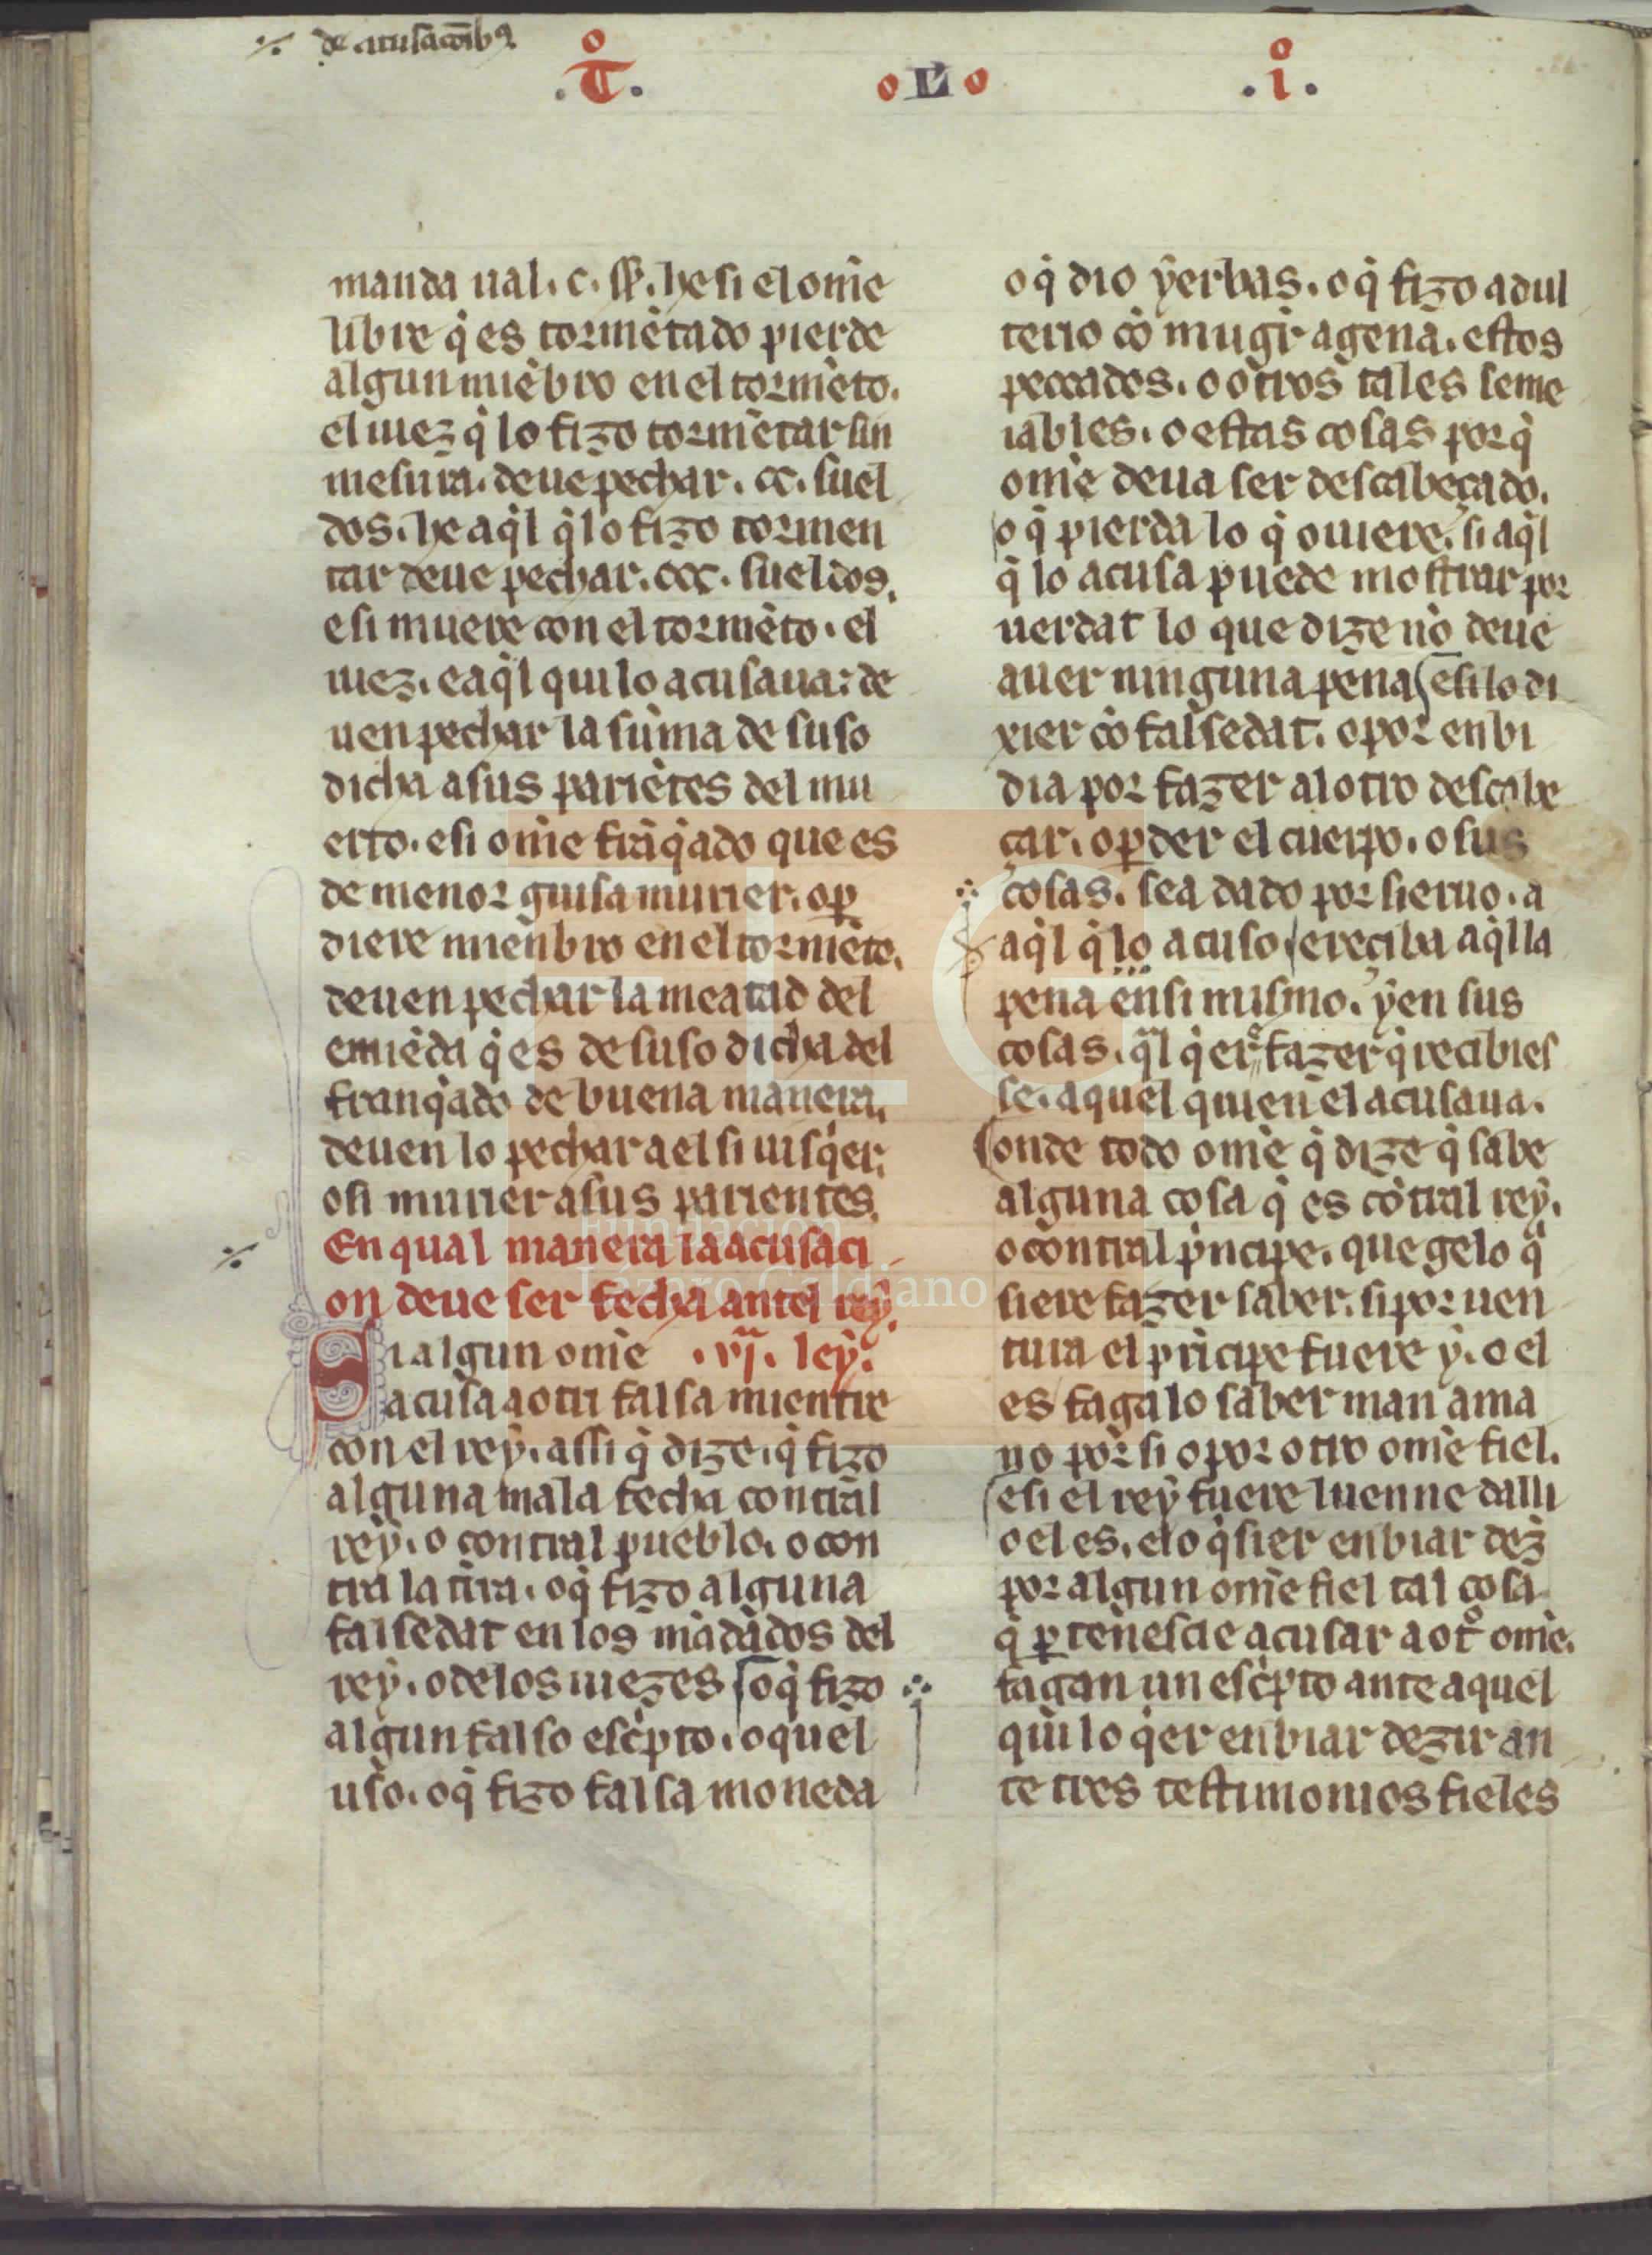 de acusacōibꝯ
.T̊. o L o .i̊.
manda ual. c. ſſ. he si el om̄e
libre q̇ es tormētado pierde
algun miēbro en el tormēto.
el iuez q̇ lo fizo tormētar sin
mesura. deue pechar. cc. suel
dos. he aq̇l q̇ lo fizo tormen
tar deue pechar. ccc. sueldos.
e si muere con el tormēto. el
iuez. e aq̇l qui lo acusaua: de
uen pechar la sūma de suso
dicha a sus pariētes del mu
erto. e si om̄e frāq̇ado que es
de menor guisa murier. o ꝑ
diere mienbro en el tormēto.
deuen pechar la meatad del
emiēda q̇ es de suso dicha del
franq̇ado de buena manera.
deuen lo pechar a el si uisq̇er.
o si murier a sus parientes.
En qual manera la acusaci
on deue ser fecha antel rey.
Si algun om̄e .vj. ley.
acusa a otri falsa mientre
con el rey. assi q̇ dize. q̇ fizo
alguna mala fecha contral
rey. o contral pueblo. o con
tra la tr̄ra. o q̇ fizo alguna
falsedat en los mādādos del
rey. o de los iuezes o q̇ fizo
algun falso esċpto. o quel
uso. o q̇ fizo falsa moneda
o q̇ dio yerbas. o q̇ fizo adul
terio cō mugr̄ agena. estos
peccados. o otros tales seme
iables. o estas cosas por q̇
om̄e deua ser descabeçado.
o q̇ pierda lo q̇ ouiere. si aq̇l
q̇ lo acusa puede mostrar por
uerdat lo que dize nō deue
auer ninguna pena e si lo di
xier cō falsedat. o por enbi
dia por fazer al otro descabe
çar. o ꝑder el cuerpo. o sus
cosas. sea dado por sieruo. a
aq̇l q̇ lo acuso e reciba aq̇lla
pena en si mismo. y en sus
cosas. q̄l q̇er fazer q̇ recibies
se. aquel quien el acusaua.
onde todo om̄e q̇ dize q̇ sabe
alguna cosa q̇ es cōtral rey.
o contral pṙncipe. que gelo q̇
siere fazer saber. si por uen
tura el pṙicipe fuere y. o el
es fagalo saber man a ma
no por si o por otro om̄e fiel.
e si el rey fuere luenne dalli
o el es. e lo q̇sier enbiar dez̄
por algun om̄e fiel tal cosa
q̇ ꝑtenescie acusar a ot̊ om̄e.
fagan un esċpto ante aquel
qui lo q̇er enbiar dezir an
te tres testimonios fieles
Fundación
Lázaro Galdiano